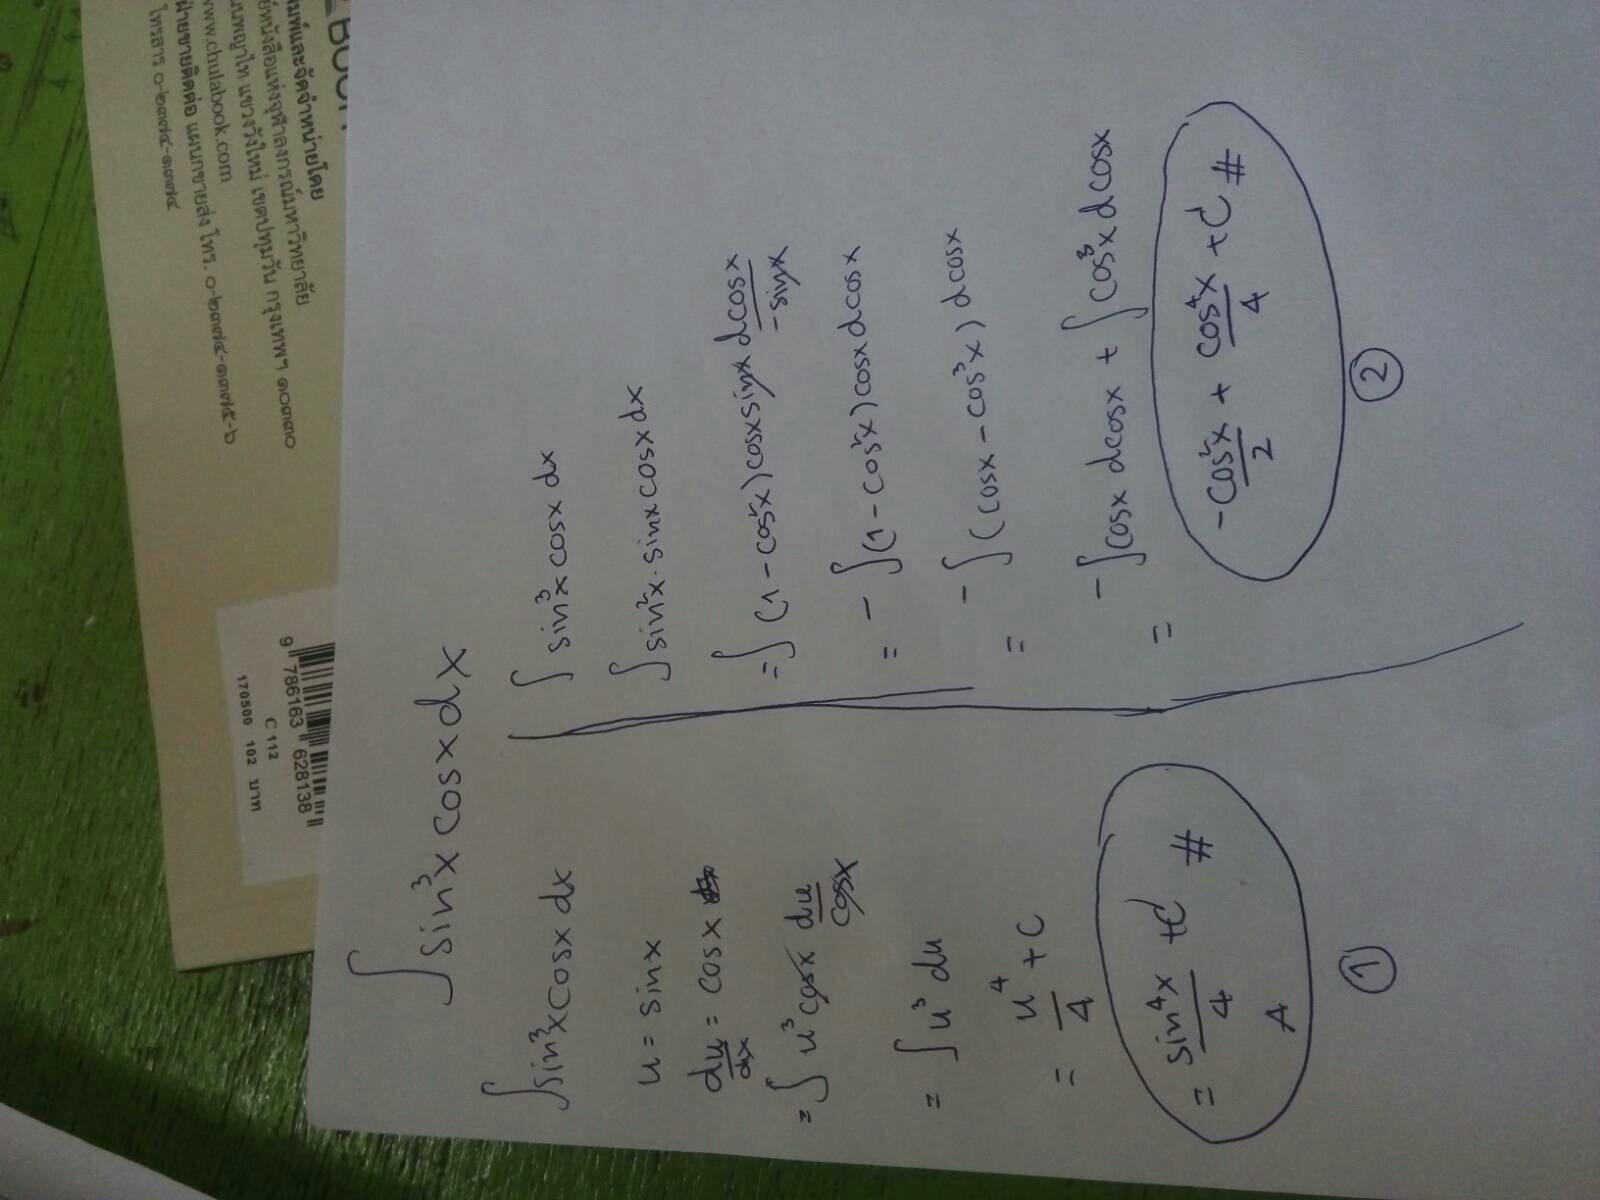 ∫ sin³x cosx dx
∫ sin³x cosx dx
u = sinx
du/dx = cosx
= ∫ u³ cosx du/cosx
= ∫ u³ du
= u⁴/4 + C
= sin⁴x/4 + C #
①
∫ sin³x cosx dx
∫ sin²x · sinx cosx dx
= ∫ (1 - cos²x) cosx sinx dcosx/-sinx
= - ∫ (1 - cos²x) cosx dcosx
= - ∫ (cosx - cos³x) dcosx
= - ∫ cosx dcosx + ∫ cos³x dcosx
-cos²x/2 + cos⁴x/4 + C #
②
พิมพ์และจัดจำหน่ายโดย
หนังสือแห่งจุฬาลงกรณ์มหาวิทยาลัย
แขวงวังใหม่ เขตปทุมวัน กรุงเทพฯ ๑๐๓๓๐
www.chulabook.com
ฝ่ายขายติดต่อ แผนกขายส่ง โทร. ๐-๒๓๗๔-๑๓๗๕-๖
โทรสาร ๐-๒๓๗๔-๑๓๗๔
9 786163 628138
C 112
170500 102 บาท